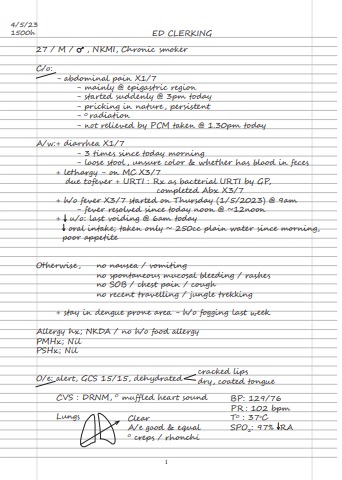 4/5/23
1500h
ED CLERKING
27 / M / ♂ , NKMI, Chronic smoker
C/o:
- abdominal pain X1/7
- mainly @ epigastric region
- started suddenly @ 3pm today
- pricking in nature, persistent
- ° radiation
- not relieved by PCM taken @ 1.30pm today
A/w:+ diarrhea X1/7
- 3 times since today morning
- loose stool, unsure color & whether has blood in faces
+ lethargy - on MC X3/7
due tofever + URTI : Rx as bacterial URTI by GP,
completed Abx X3/7
+ h/o fever X3/7 started on Thursday (1/5/2023) @ 9am
- fever resolved since today noon @ ~12noon
+ ↓ u/o: last voiding @ 6am today
↓ oral intake; taken only ~ 250cc plain water since morning,
poor appetite
Otherwise, no nausea / vomiting
no spontaneous mucosal bleeding / rashes
no SOB / chest pain / cough
no recent travelling / jungle trekking
+ stay in dengue prone area - h/o fogging last week
Allergy hx; NKDA / no h/o food allergy
PMHx; Nil
PSHx; Nil
O/e: alert, GCS 15/15, dehydrated < cracked lips
dry, coated tongue
CVS : DRNM, ° muffled heart sound
BP: 129/76
PR : 102 bpm
T° : 37°C
SPO₂: 97% ↓RA
Lungs
Clear
A/e good & equal
° creps / rhonchi
1